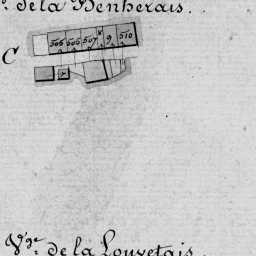 de la Benherais.
C
505 506 507 9 510
Vge. de la Louvetais.